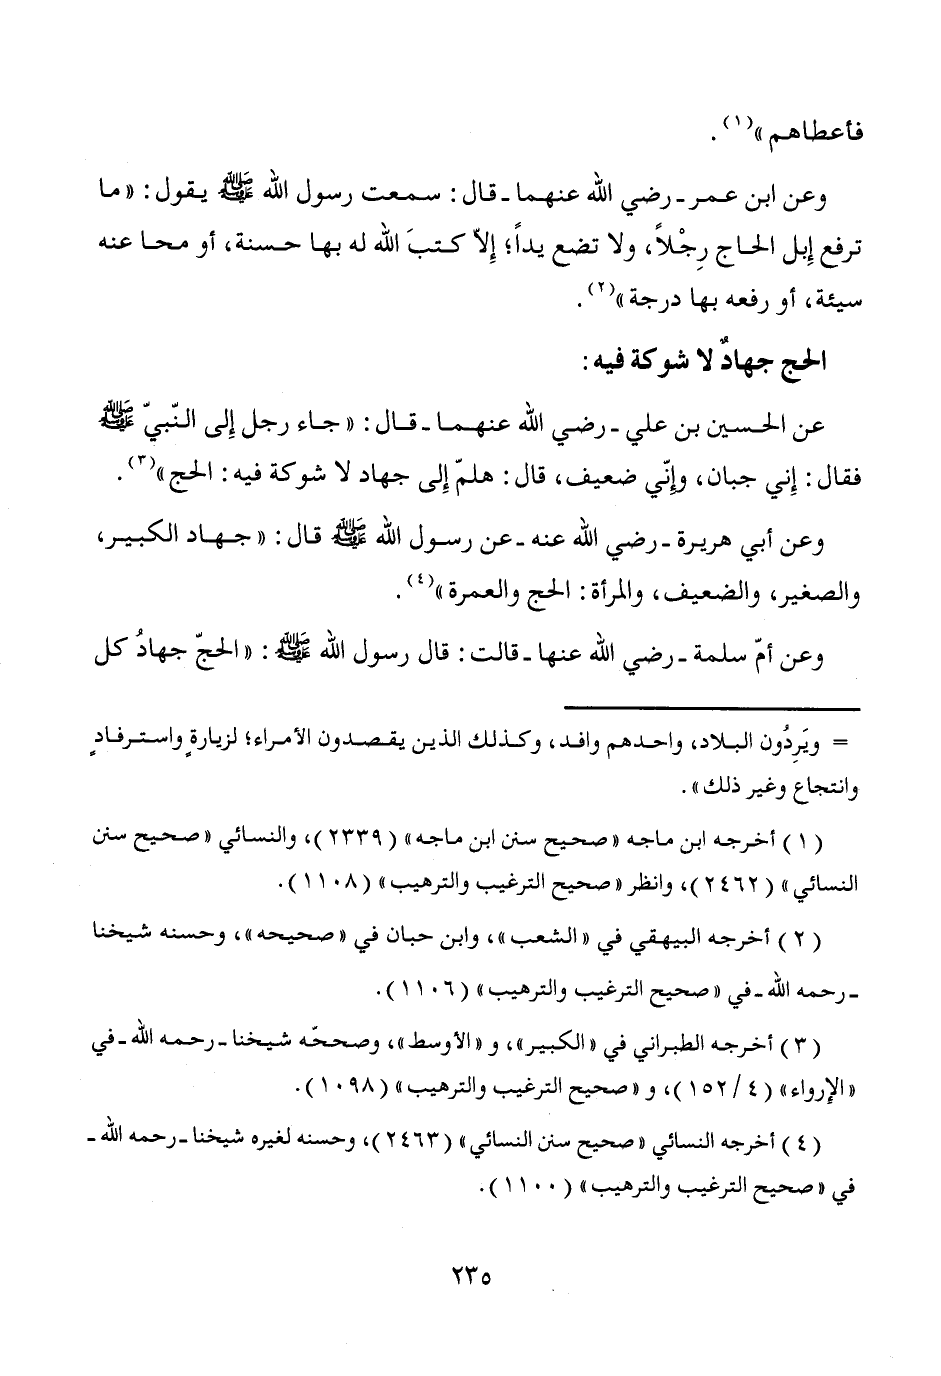 فأعطاهم»(١).
وعن ابن عمر ـ رضي الله عنهما ـ قال: سمعت رسول الله ﷺ يقول: «ما
ترفع إبل الحاج رِجْلاً، ولا تضع يداً؛ إلاّ كتبَ الله له بها حسنة، أو محا عنه
سيئة، أو رفعه بها درجة»(٢).
الحج جهادٌ لا شوكة فيه:
عن الحسين بن علي ـ رضي الله عنهما ـ قال: «جاء رجل إلى النّبيّ ﷺ
فقال: إني جبان، وإنّي ضعيف، قال: هلمّ إلى جهاد لا شوكة فيه: الحج»(٣).
وعن أبي هريرة ـ رضي الله عنه ـ عن رسول الله ﷺ قال: «جهاد الكبير،
والصغير، والضعيف، والمرأة: الحج والعمرة»(٤).
وعن أمّ سلمة ـ رضي الله عنها ـ قالت: قال رسول الله ﷺ: «الحجّ جهادُ كل
= ويَرِدُون البلاد، واحدهم وافد، وكذلك الذين يقصدون الأمراء؛ لزيارةٍ واسترفادٍ
وانتجاع وغير ذلك».
(١) أخرجه ابن ماجه «صحيح سنن ابن ماجه» (٢٣٣٩)، والنسائي «صحيح سنن
النسائي» (٢٤٦٢)، وانظر «صحيح الترغيب والترهيب» (١١٠٨).
(٢) أخرجه البيهقي في «الشعب»، وابن حبان في «صحيحه»، وحسنه شيخنا
ـ رحمه الله ـ في «صحيح الترغيب والترهيب» (١١٠٦).
(٣) أخرجه الطبراني في «الكبير»، و «الأوسط»، وصححّه شيخنا ـ رحمه الله ـ في
«الإرواء» (٤/ ١٥٢)، و «صحيح الترغيب والترهيب» (١٠٩٨).
(٤) أخرجه النسائي «صحيح سنن النسائي» (٢٤٦٣)، وحسنه لغيره شيخنا ـ رحمه الله ـ
في «صحيح الترغيب والترهيب» (١١٠٠).
٢٣٥